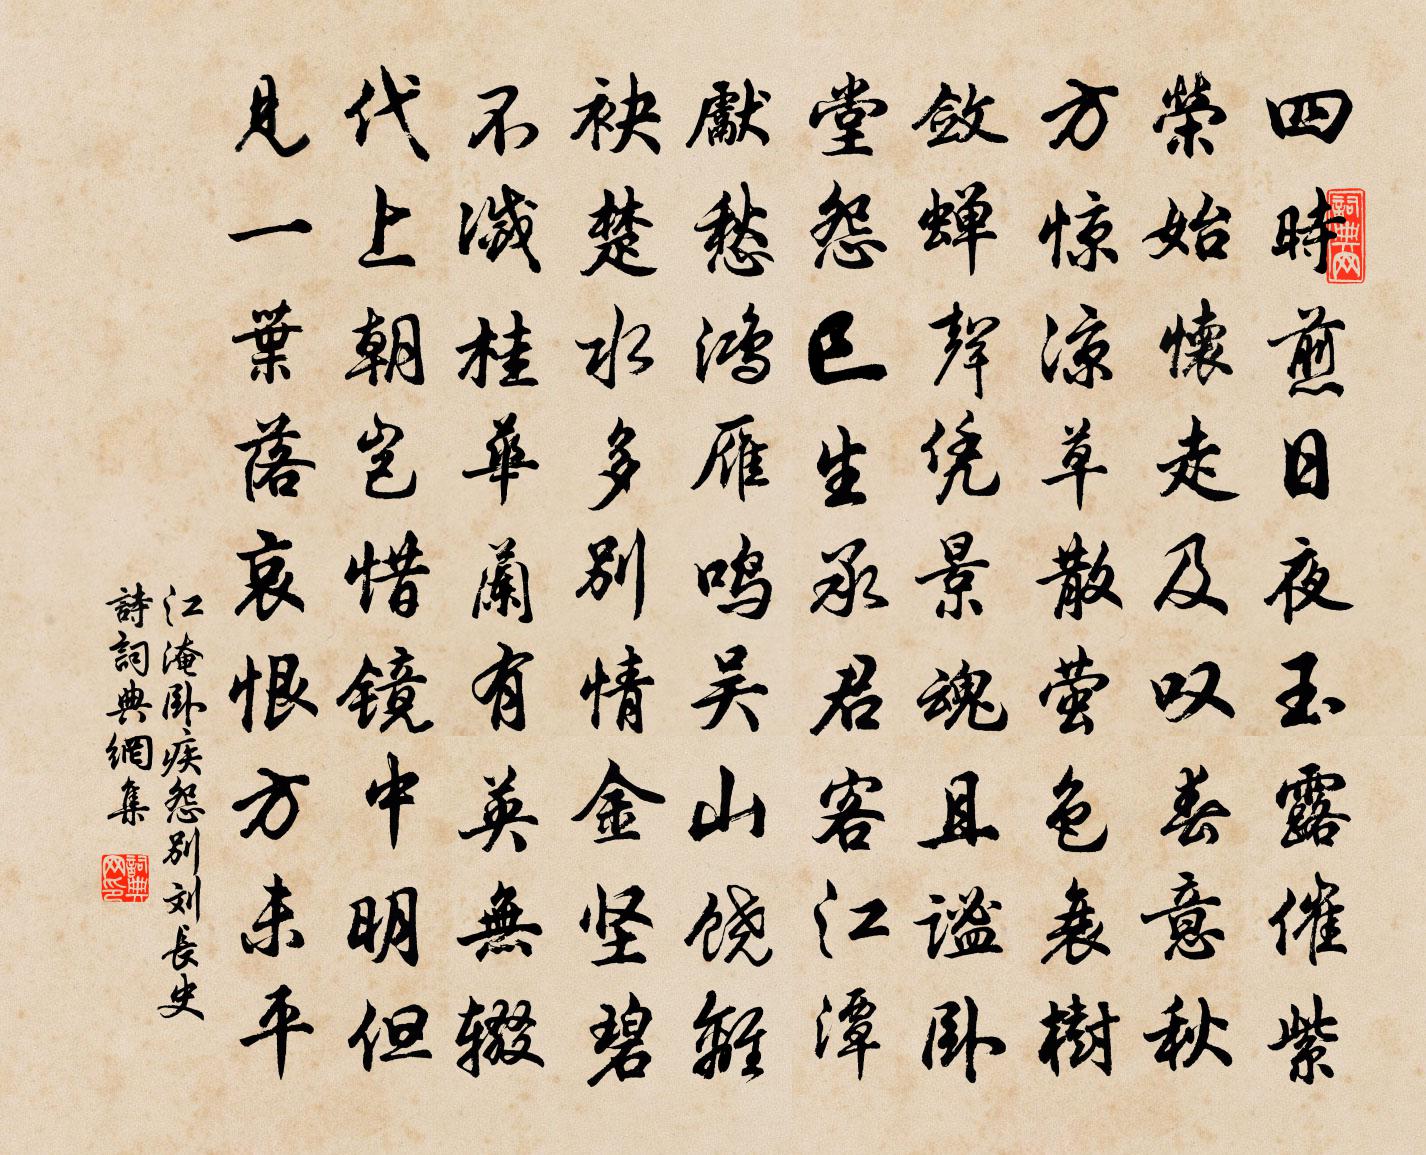 四時煎日夜玉露催紫
榮始懷走及叹春意秋
方惊凉草散萤色衰樹
斂蝉聲凭景魂且谧卧
堂怨已生承君客江潭
獻愁鴻雁鸣吴山饶離
袂楚水多别情金坚碧
不滅桂華蘭有英無辍
代上朝岂惜镜中明但
見一葉落哀恨方未平
江淹卧疾怨别刘長史
詩詞典網集
詞典网
詞典网印